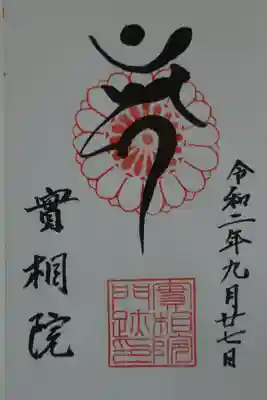 令和二年九月廿七日
實相院
實相院
門跡印